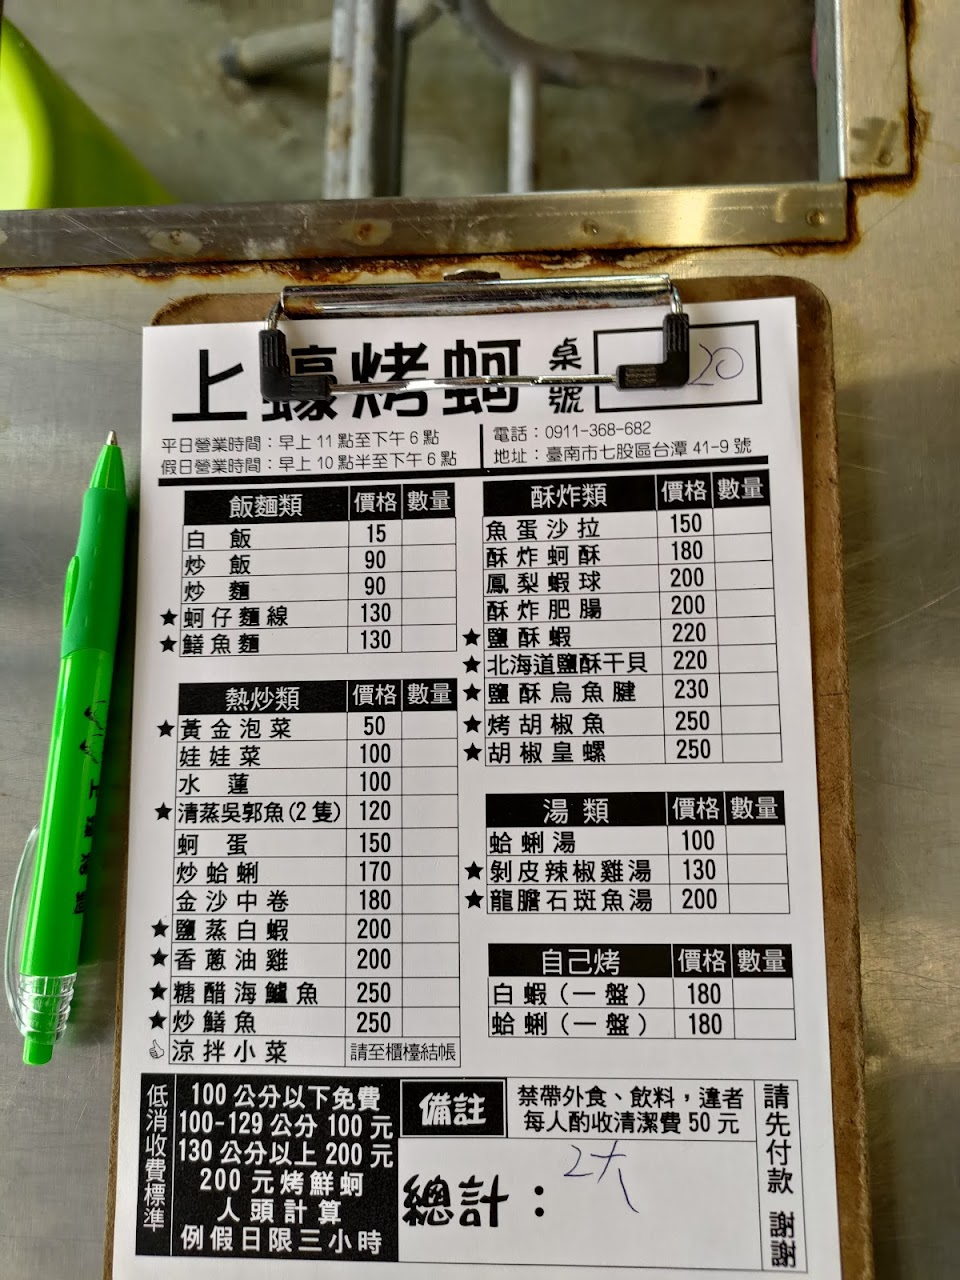 上蠔烤蚵
桌號 20
平日營業時間：早上 11 點至下午 6 點
假日營業時間：早上 10 點半至下午 6 點
電話：0911-368-682
地址：臺南市七股區台潭 41-9 號
飯麵類 價格 數量
白飯 15
炒飯 90
炒麵 90
★蚵仔麵線 130
★鱔魚麵 130
熱炒類 價格 數量
★黃金泡菜 50
娃娃菜 100
水蓮 100
★清蒸吳郭魚(2隻) 120
蚵蛋 150
炒蛤蜊 170
金沙中卷 180
★鹽蒸白蝦 200
★香蔥油雞 200
★糖醋海鱸魚 250
★炒鱔魚 250
涼拌小菜 請至櫃檯結帳
酥炸類 價格 數量
魚蛋沙拉 150
酥炸蚵酥 180
鳳梨蝦球 200
酥炸肥腸 200
★鹽酥蝦 220
★北海道鹽酥干貝 220
★鹽酥烏魚腱 230
★烤胡椒魚 250
★胡椒皇螺 250
湯類 價格 數量
蛤蜊湯 100
★剝皮辣椒雞湯 130
★龍膽石斑魚湯 200
自己烤 價格 數量
白蝦(一盤) 180
蛤蜊(一盤) 180
低消收費標準
100 公分以下免費
100-129 公分 100 元
130 公分以上 200 元
200 元烤鮮蚵
人頭計算
例假日限三小時
備註
禁帶外食、飲料，違者
每人酌收清潔費 50 元
總計：
2大
請先付款 謝謝